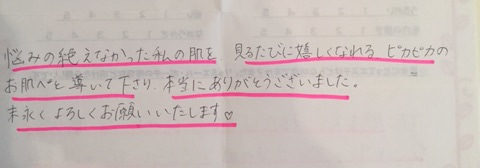 悩みの絶えなかった私の肌を 見るたびに嬉しくなれる ピカピカの
お肌へと導いて下さり、本当にありがとうございました。
末永くよろしくお願いいたします♡